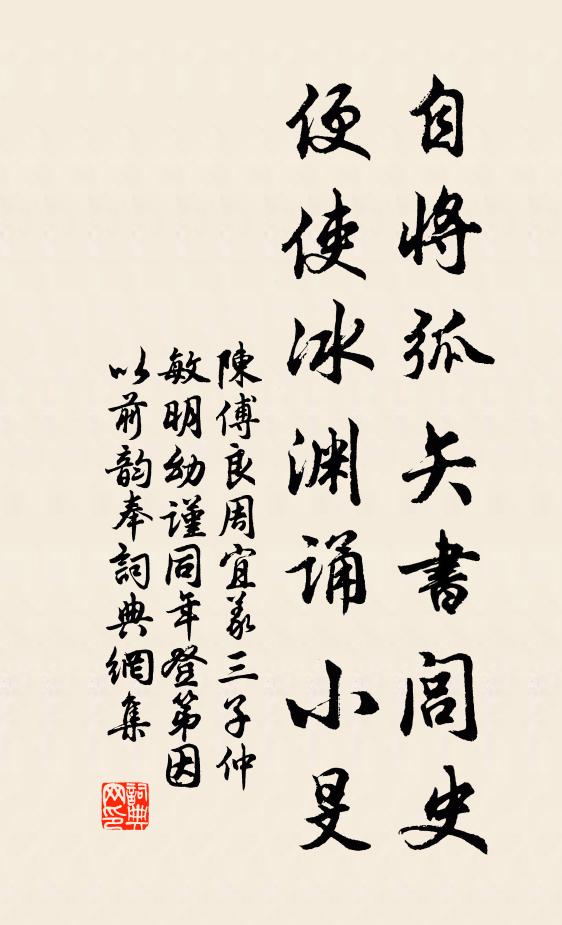 自将弧矢書閭史
便使冰渊诵小旻
陳傅良周宜義三子仲
敏明幼謹同年登第因
以前韵奉詞典網集
詞典网印